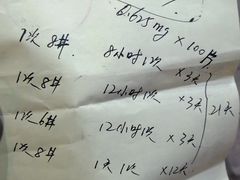 0.625mg × 100片
1次 8# 8小时1次 × 3天
1次 8# 12小时1次 × 3天
1次 6# 12小时1次 × 3天
1次 8# 1天1次 × 12天
21天